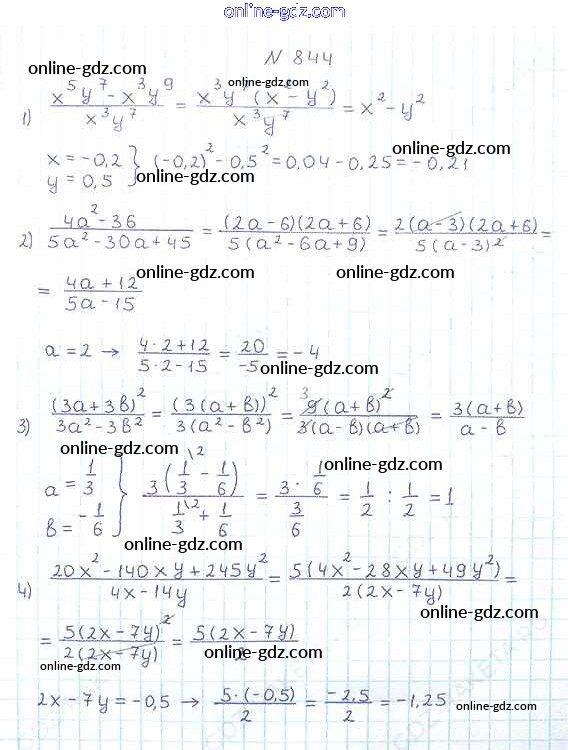 online-gdz.com
N 844
online-gdz.com online-gdz.com
1) (x^5y^7 - x^3y^9)/(x^3y^7) = (x^3y^7(x^2 - y^2))/(x^3y^7) = x^2 - y^2
x = -0,2 } (-0,2)^2 - 0,5^2 = 0,04 - 0,25 = -0,21
y = 0,5
online-gdz.com online-gdz.com
2) (4a^2 - 36)/(5a^2 - 30a + 45) = ((2a - 6)(2a + 6))/(5(a^2 - 6a + 9)) = (2(a - 3)(2a + 6))/(5(a - 3)^2) =
online-gdz.com online-gdz.com
= (4a + 12)/(5a - 15)
a = 2 → (4·2 + 12)/(5·2 - 15) = 20/-5 = -4
online-gdz.com
3) (3a + 3b)^2/(3a^2 - 3b^2) = (3(a + b))^2/(3(a^2 - b^2)) = 3 9(a + b)^2/(3(a - b)(a + b)) = 3(a + b)/(a - b)
online-gdz.com online-gdz.com
a = 1/3 } 3(1/3\2 - 1/6)/(1/3\2 + 1/6) = (3 · 1/6)/(3/6) = 1/2 : 1/2 = 1
b = -1/6
online-gdz.com
4) (20x^2 - 140xy + 245y^2)/(4x - 14y) = 5(4x^2 - 28xy + 49y^2)/(2(2x - 7y)) =
online-gdz.com
= 5(2x - 7y)^2/(2(2x - 7y)) = 5(2x - 7y)/2
online-gdz.com online-gdz.com
2x - 7y = -0,5 → 5·(-0,5)/2 = -2,5/2 = -1,25
online-gdz.com